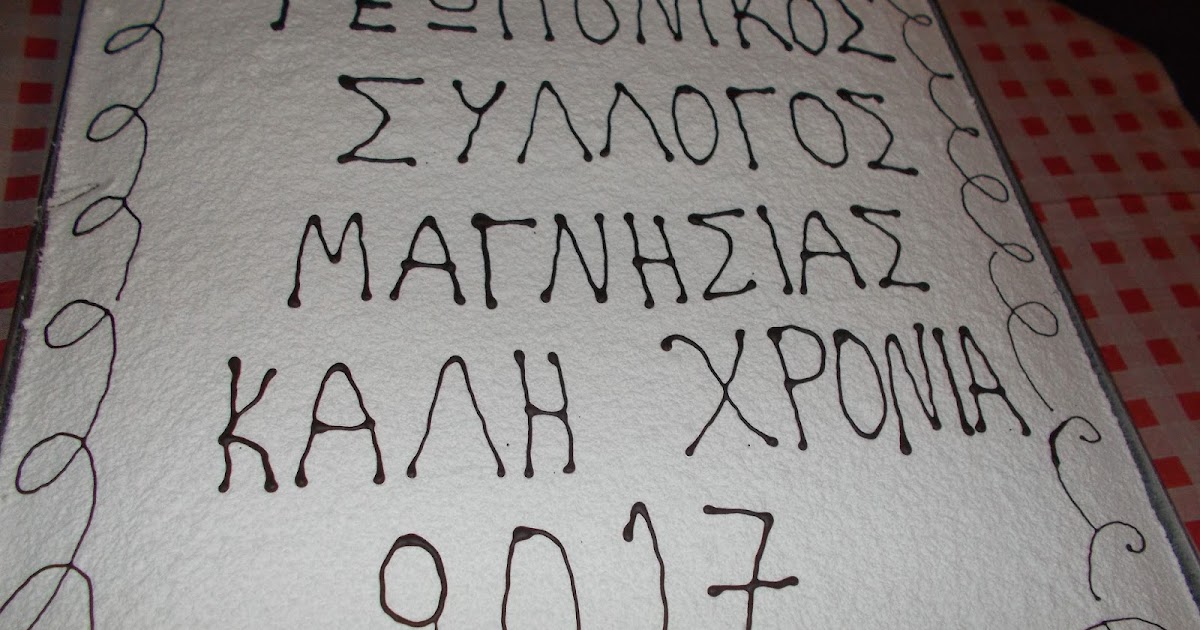 ΓΕΩΠΟΝΙΚΟΣ
ΣΥΛΛΟΓΟΣ
ΜΑΓΝΗΣΙΑΣ
ΚΑΛΗ ΧΡΟΝΙΑ
2017